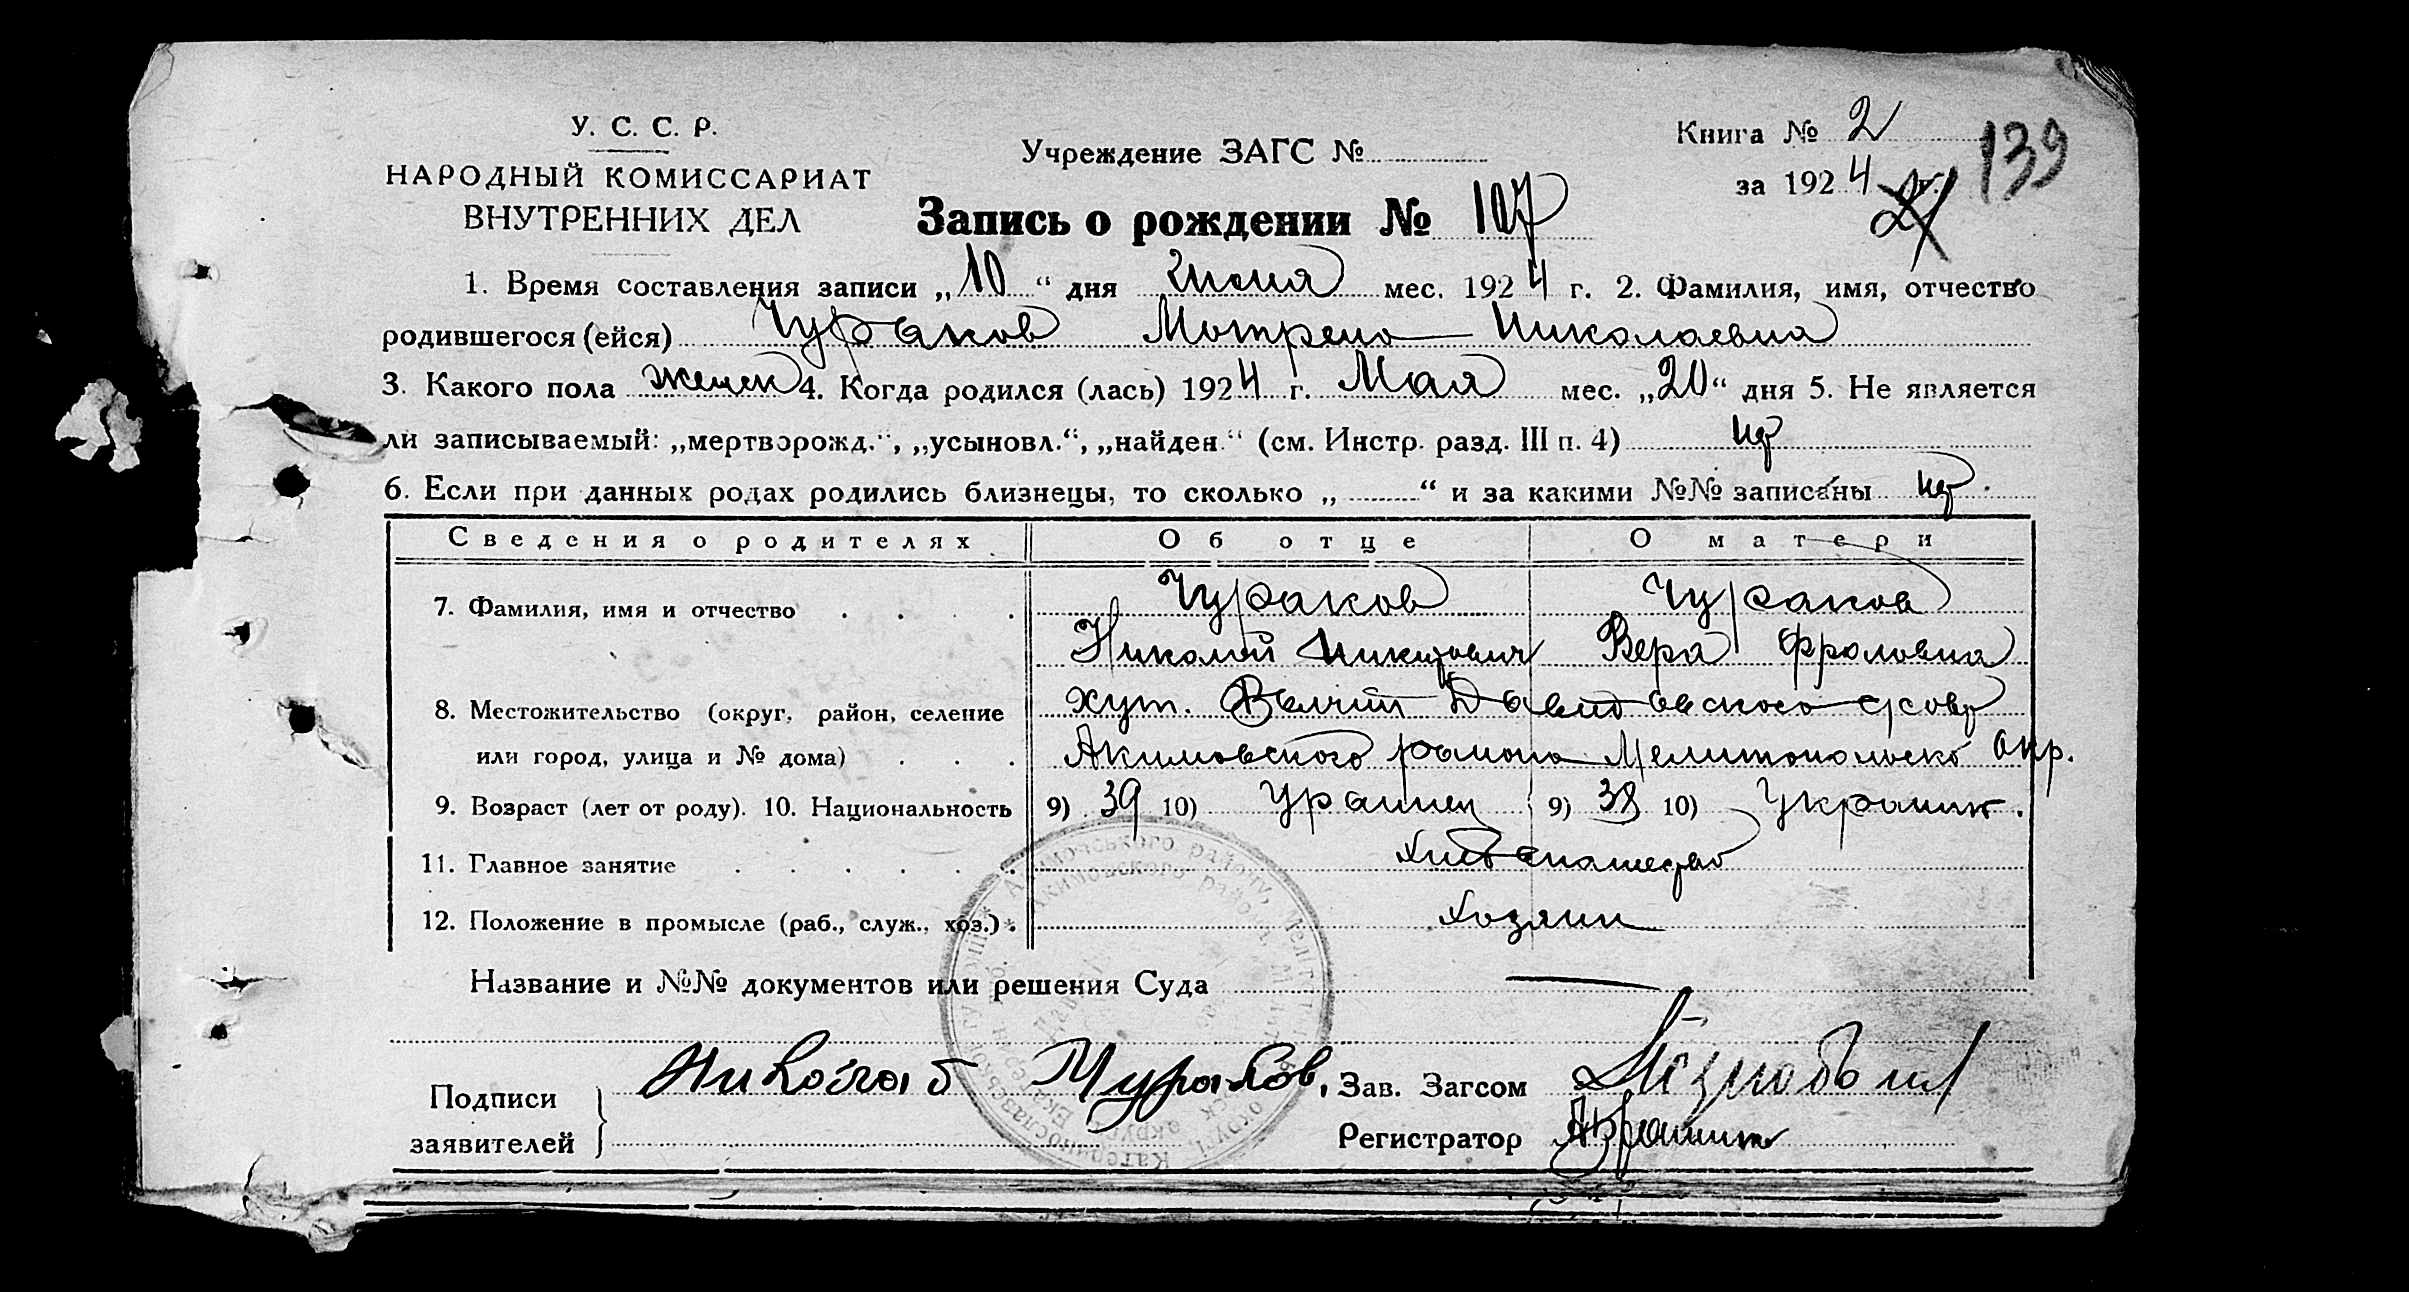 У. С. С. Р.
НАРОДНЫЙ КОМИССАРИАТ
ВНУТРЕННИХ ДЕЛ
Учреждение ЗАГС №
Книга № 2
за 1924 г.
139
Запись о рождении № 107
1. Время составления записи „10“ дня Июня мес. 1924 г. 2. Фамилия, имя, отчество
родившегося (ейся) Чураков Мотрена Николаевна
3. Какого пола женск 4. Когда родился (лась) 1924 г. Мая мес. „20“ дня 5. Не является
ли записываемый: „мертворожд.“, „усыновл.“, „найден.“ (см. Инстр. разд. III п. 4) нет
6. Если при данных родах родились близнецы, то сколько „ “ и за какими №№ записаны нет
Сведения о родителях Об отце О матери
7. Фамилия, имя и отчество Чураков Чураков
Николай Никитович Вера Фроловна
8. Местожительство (округ, район, селение хут. Давидовского
или город, улица и № дома) Акимовского района Мелитопольско окр.
9. Возраст (лет от роду). 10. Национальность 9) 39 10) Украинец 9) 38 10) Украинк.
11. Главное занятие Хлебопашество
12. Положение в промысле (раб., служ., хоз.) Хозяин
Название и №№ документов или решения Суда —
Подписи
заявителей
Николай Чураков
Зав. Загсом
Регистратор